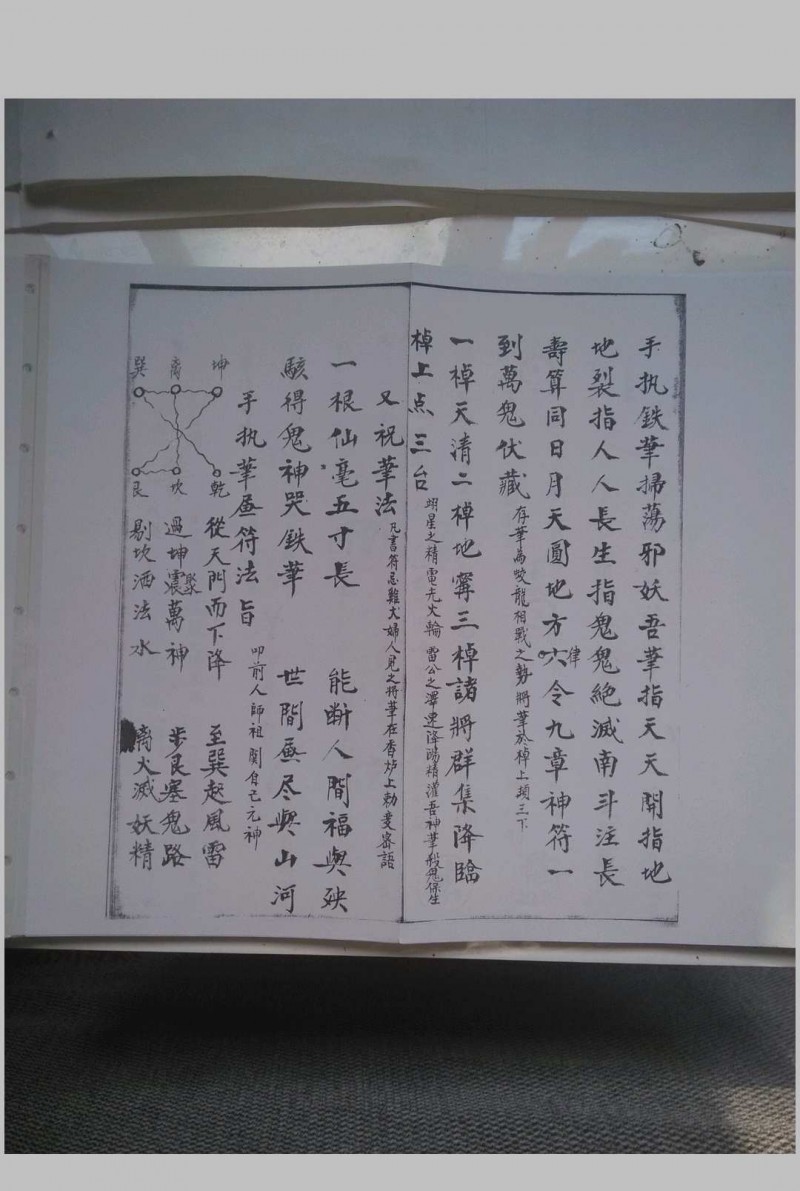 手执鉄筆掃蕩邪妖吾筆指天天開指地
地裂指人人長生指鬼鬼絶滅南斗注長
壽算同日月天圓地方六律令九章神符一
到萬鬼伏藏 存筆為咬龍相戰之勢將筆於棹上頓三下
一棹天清二棹地寧三棹諸將群集降臨
棹上点三台 翊星之精電光火輪雷公之澤速降陽精灌吾神筆殺鬼保生
又祝筆法 凡書符忌雞犬婦人見之将筆在香炉上勅変密語
一根仙毫五寸長 能断人間福與殃
駭得鬼神哭鉄筆 世間無尽與山河
手执筆画符法旨 叩前人師祖 自己元神
坤 離 巽
乾 坎 艮
從天門而下降 至巽起風雷
過坤震聚萬神 步艮塞鬼路
剔坎洒法水 离火滅妖精